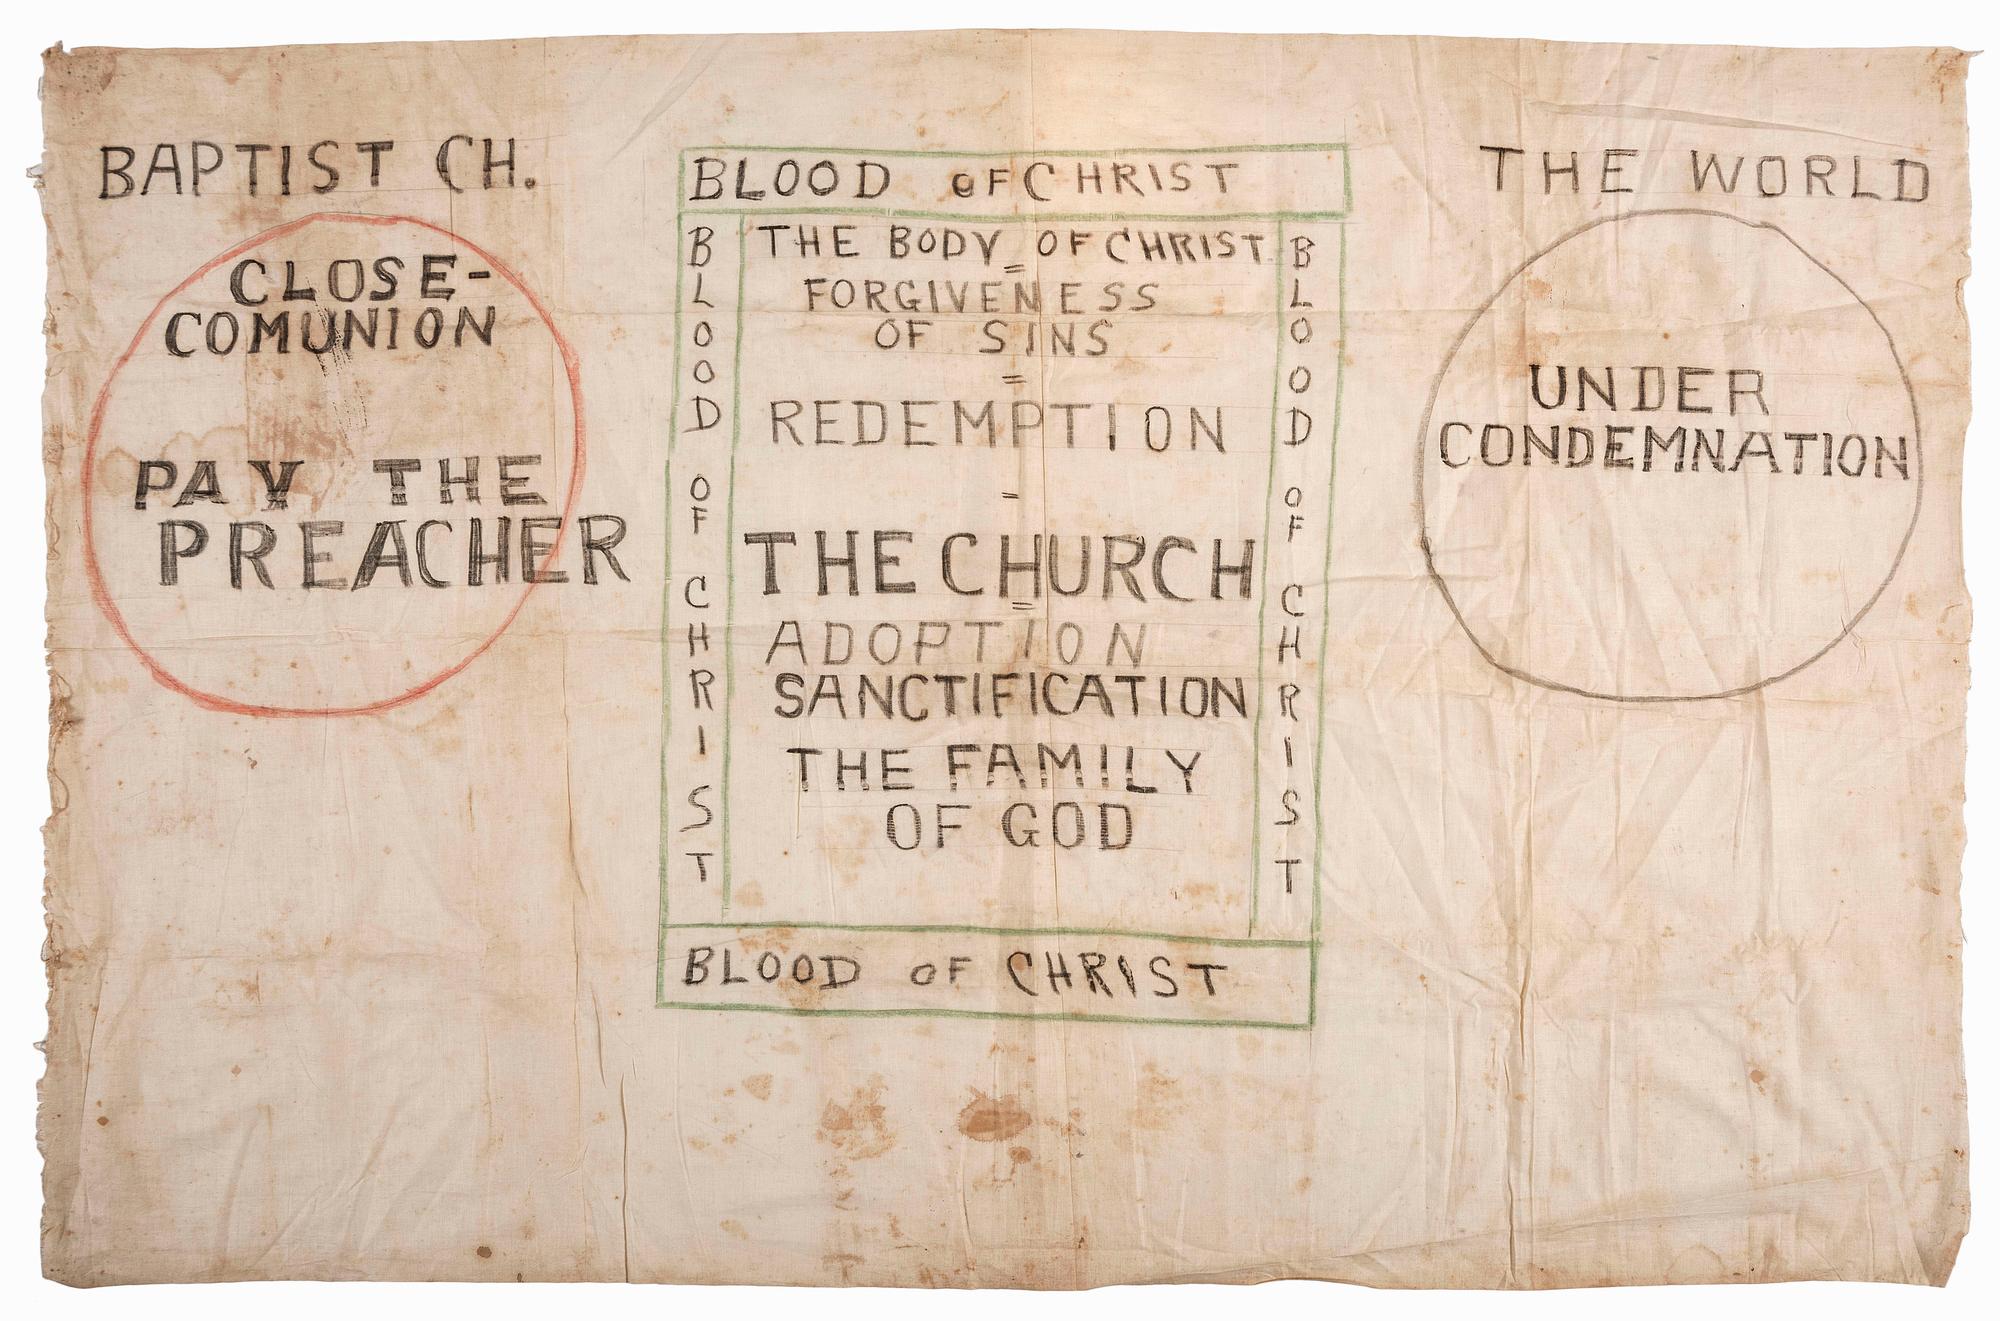 BAPTIST CH.
CLOSE-
COMUNION
PAY THE
PREACHER
BLOOD OF CHRIST
BLOOD OF CHRIST
THE BODY OF CHRIST
=
FORGIVENESS
OF SINS
=
REDEMPTION
=
THE CHURCH
=
ADOPTION
SANCTIFICATION
THE FAMILY
OF GOD
BLOOD OF CHRIST
BLOOD OF CHRIST
THE WORLD
UNDER
CONDEMNATION